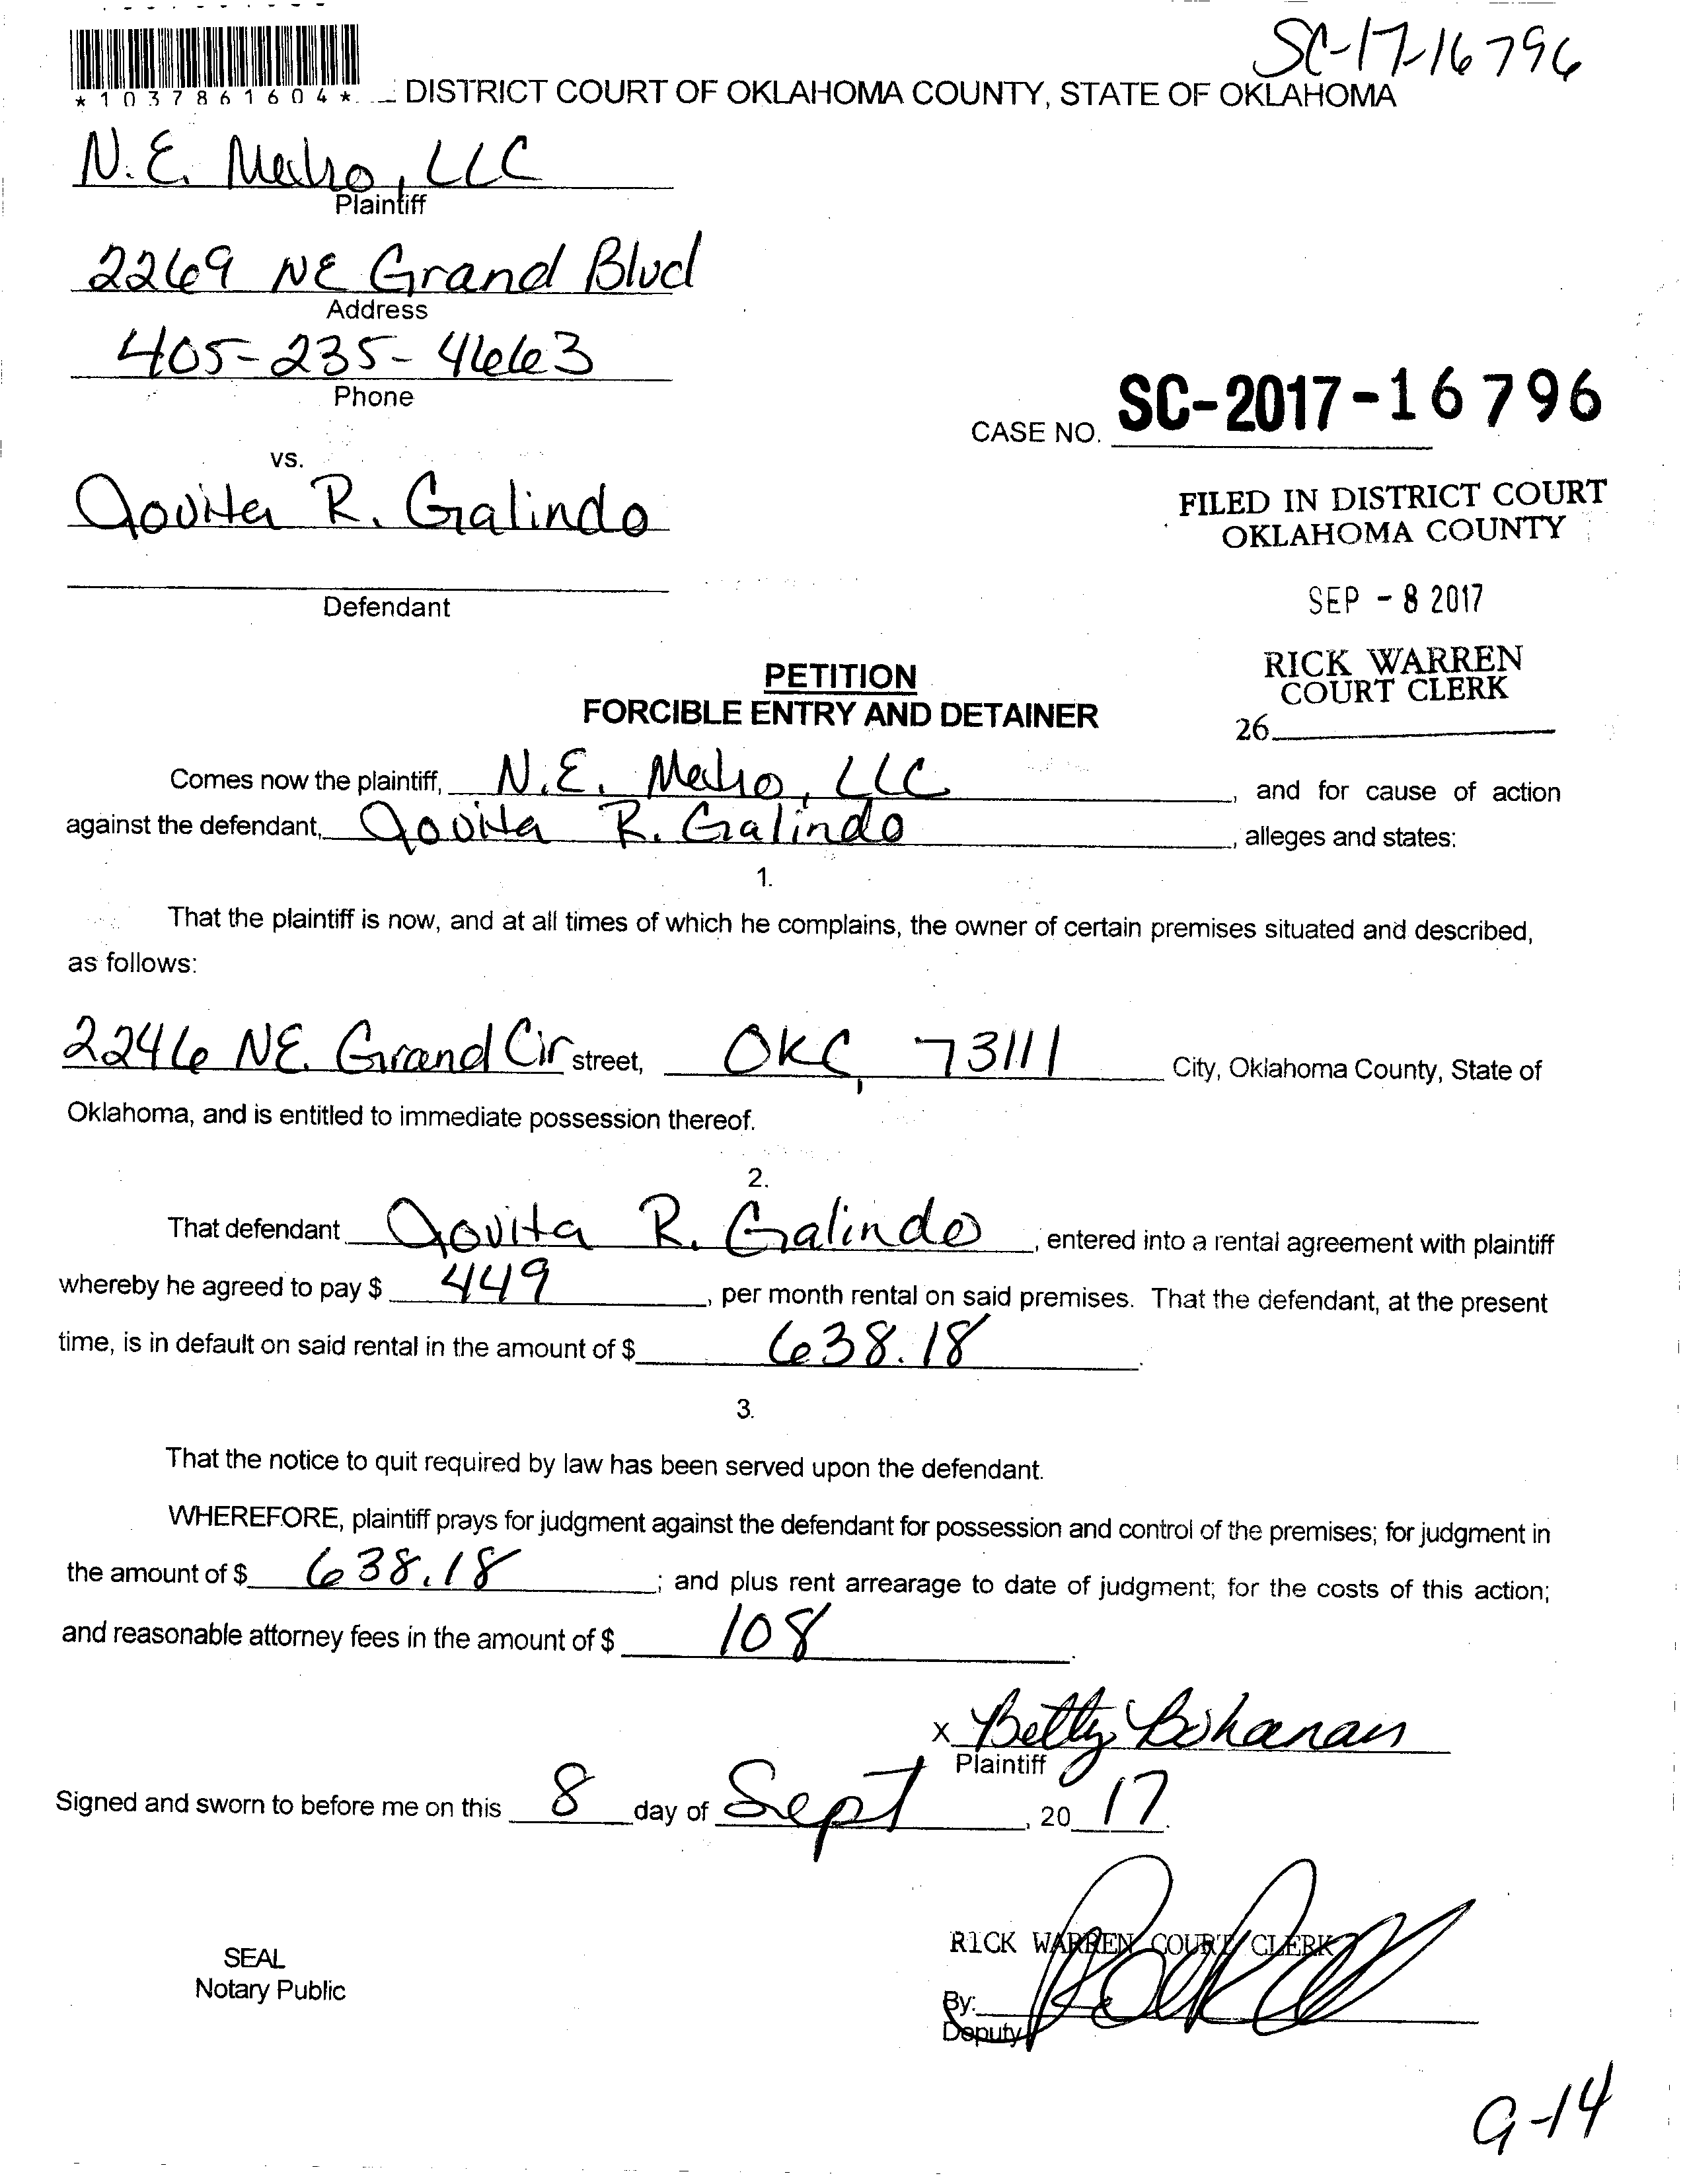 SC-17-16796
*1037861604*
DISTRICT COURT OF OKLAHOMA COUNTY, STATE OF OKLAHOMA
N.E. Metro, LLC
Plaintiff
2269 NE Grand Blvd
Address
405-235-4663
Phone
CASE NO. SC-2017-16796
vs.
Jovita R. Galindo
Defendant
FILED IN DISTRICT COURT
OKLAHOMA COUNTY
SEP - 8 2017
RICK WARREN
COURT CLERK
26
PETITION
FORCIBLE ENTRY AND DETAINER
Comes now the plaintiff, N.E. Metro, LLC, and for cause of action
against the defendant, Jovita R. Galindo, alleges and states:
1.
That the plaintiff is now, and at all times of which he complains, the owner of certain premises situated and described,
as follows:
2246 NE. Grand Cir street, OKC, 73111 City, Oklahoma County, State of
Oklahoma, and is entitled to immediate possession thereof.
2.
That defendant Jovita R. Galindo, entered into a rental agreement with plaintiff
whereby he agreed to pay $ 449, per month rental on said premises. That the defendant, at the present
time, is in default on said rental in the amount of $ 638.18.
3.
That the notice to quit required by law has been served upon the defendant.
WHEREFORE, plaintiff prays for judgment against the defendant for possession and control of the premises; for judgment in
the amount of $ 638.18; and plus rent arrearage to date of judgment; for the costs of this action;
and reasonable attorney fees in the amount of $ 108.
x Betty Bohanan
Plaintiff
Signed and sworn to before me on this 8 day of Sept, 20 17.
SEAL
Notary Public
RICK WARREN COURT CLERK
By:
Deputy
9-14